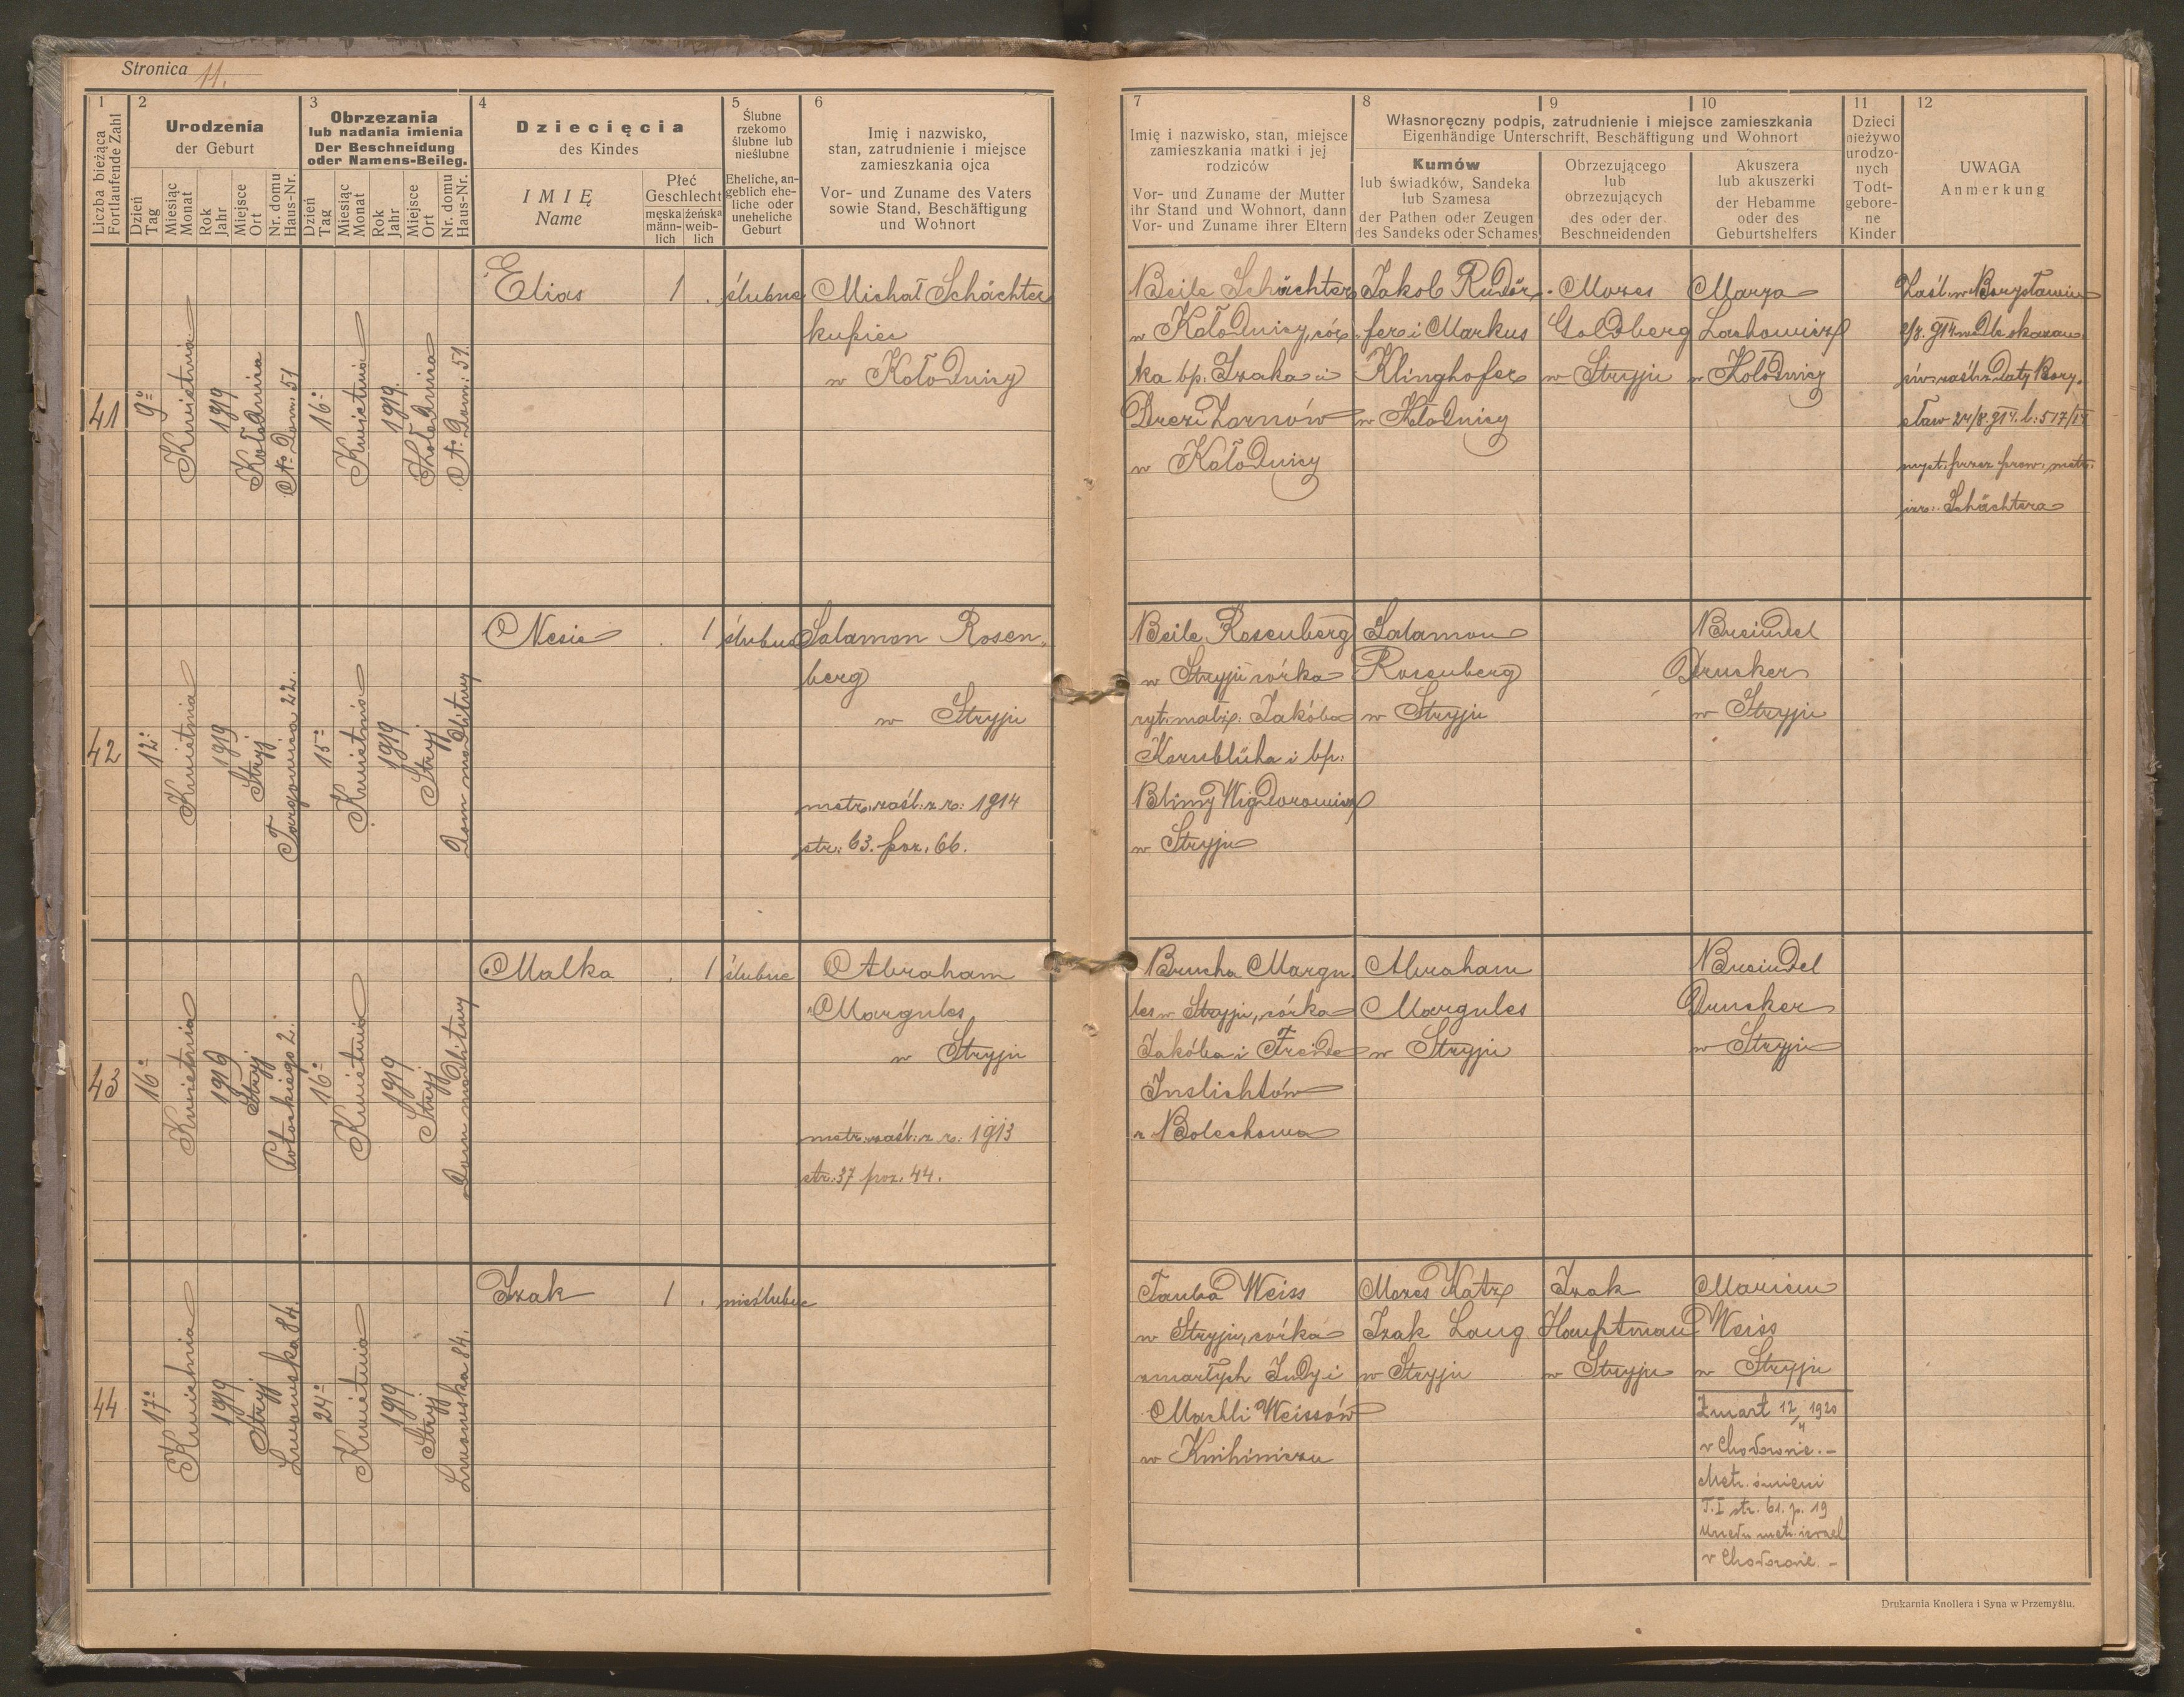 Stronica 11.
1
Liczba bieżąca
Fortlaufende Zahl
2
Urodzenia
der Geburt
Dzień
Tag
Miesiąc
Monat
Rok
Jahr
Miejsce
Ort
Nr. domu
Haus-Nr.
3
Obrzezania
lub nadania imienia
Der Beschneidung
oder Namens-Beileg.
Dzień
Tag
Miesiąc
Monat
Rok
Jahr
Miejsce
Ort
Nr. domu
Haus-Nr.
4
Dziecięcia
des Kindes
IMIĘ
Name
Płeć
Geschlecht
męska
männ-
lich
żeńska
weib-
lich
5
Ślubne
rzekomo
ślubne lub
nieślubne
Eheliche, an-
geblich ehe-
liche oder
uneheliche
Geburt
6
Imię i nazwisko,
stan, zatrudnienie i miejsce
zamieszkania ojca
Vor- und Zuname des Vaters
sowie Stand, Beschäftigung
und Wohnort
7
Imię i nazwisko, stan, miejsce
zamieszkania matki i jej
rodziców
Vor- und Zuname der Mutter
ihr Stand und Wohnort, dann
Vor- und Zuname ihrer Eltern
8
9
10
Własnoręczny podpis, zatrudnienie i miejsce zamieszkania
Eigenhändige Unterschrift, Beschäftigung und Wohnort
Kumów
lub świadków, Sandeka
lub Szamesa
der Pathen oder Zeugen
des Sandeks oder Schames
Obrzezującego
lub
obrzezujących
des oder der
Beschneidenden
Akuszera
lub akuszerki
der Hebamme
oder des
Geburtshelfers
11
Dzieci
nieżywo
urodzo-
nych
Todt-
gebore-
ne
Kinder
12
UWAGA
Anmerkung
41
9
Kwietnia
1919
Kołodnica
No Dom: 51
16
Kwietnia
1919.
Kołodnica
No Dom: 51.
Elias
1 .
ślubne
Michał Schächter
kupiec
w Kołodnicy
Beile Schächter
w Kołodnicy, cór
ka bp. Izaka i
Drezi Zornów
w Kołodnicy
Jakob Rudör
fer i Markus
Klinghofer
w Kłodnicy
Mozes
Goldberg
w Stryju
Marya
Lachowicz
w Kołodnicy
Zaśl. w Borysławiu
pow. zaśl. z daty Bory.
sław 24/8. 914. l: 517/14
wyst. przez prow. metr.
izr: Schächtera
42
12
Kwietnia
1919
Stryj
Targowica 22.
15
Kwietnia
1919
Stryj
Dom modlitwy
Nesie
. 1
ślubne
Salamon Rosen
berg
w Stryju
metr. zaśl: z r: 1914
str: 63. poz. 66.
Beile Rosenberg
w Stryju córka
ryt. małż. Jakóba
Kornblüha i bp:
Blimy Wigdorowicz
w Stryju
Salamon
Rosenberg
w Stryju
Breindel
Drucker
w Stryju
43
16
Kwietnia
1919
Stryj
Potockiego 2.
16
Kwietnia
1919
Stryj
Dom modlitwy
Malka
. 1
ślubne
Abraham
Margules
w Stryju
metr. zaśl: z r: 1913
str: 37 poz. 44.
Brucha Margu
les w Stryju, córka
Jakóba i Freide
Inslichtów
z Bolechowa
Abraham
Margules
w Stryju
Breindel
Drucker
w Stryju
44
17
Kwietnia
1919
Stryj
Lwowska 84.
24
Kwietnia
1919
Stryj
Lwowska 84.
Izak
1 .
nieślubne
Tauba Weiss
w Stryju, córka
zmarłych Judy i
Machli Weissów
w Knihiniczu
Mozes Katz
Izak Laug
w Stryju
Izak
Hauptman
w Stryju
Mariem
Weiss
w Stryju
Zmarł 12/4 1920
w Chodorowie. -
Metr. śmierci
T. I str. 61. p. 19
Urzędu metr. izrael
w Chodorowie. -
Drukarnia Knollera i Syna w Przemyślu.